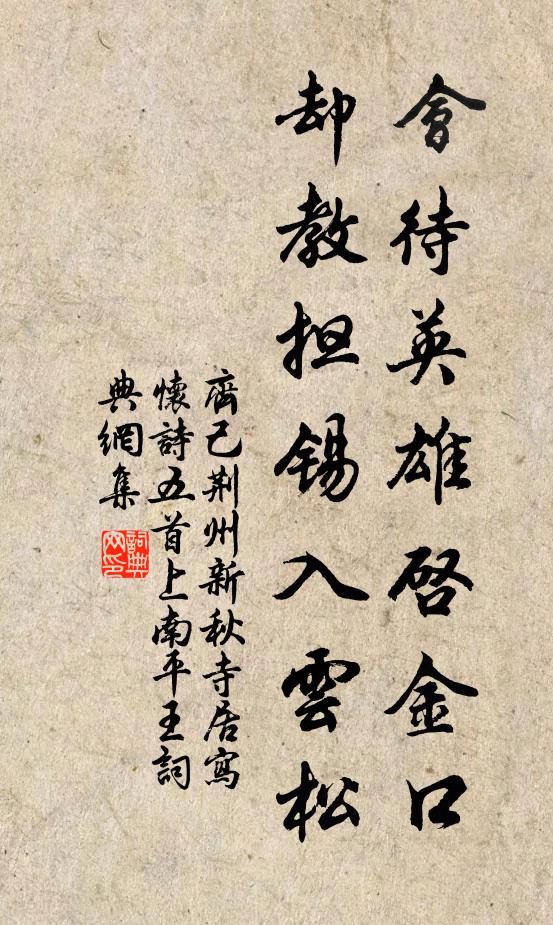 會待英雄啓金口
却教担錫入雲松
齊己荆州新秋寺居寫
懷詩五首上南平王詞
典網集
詞典网印